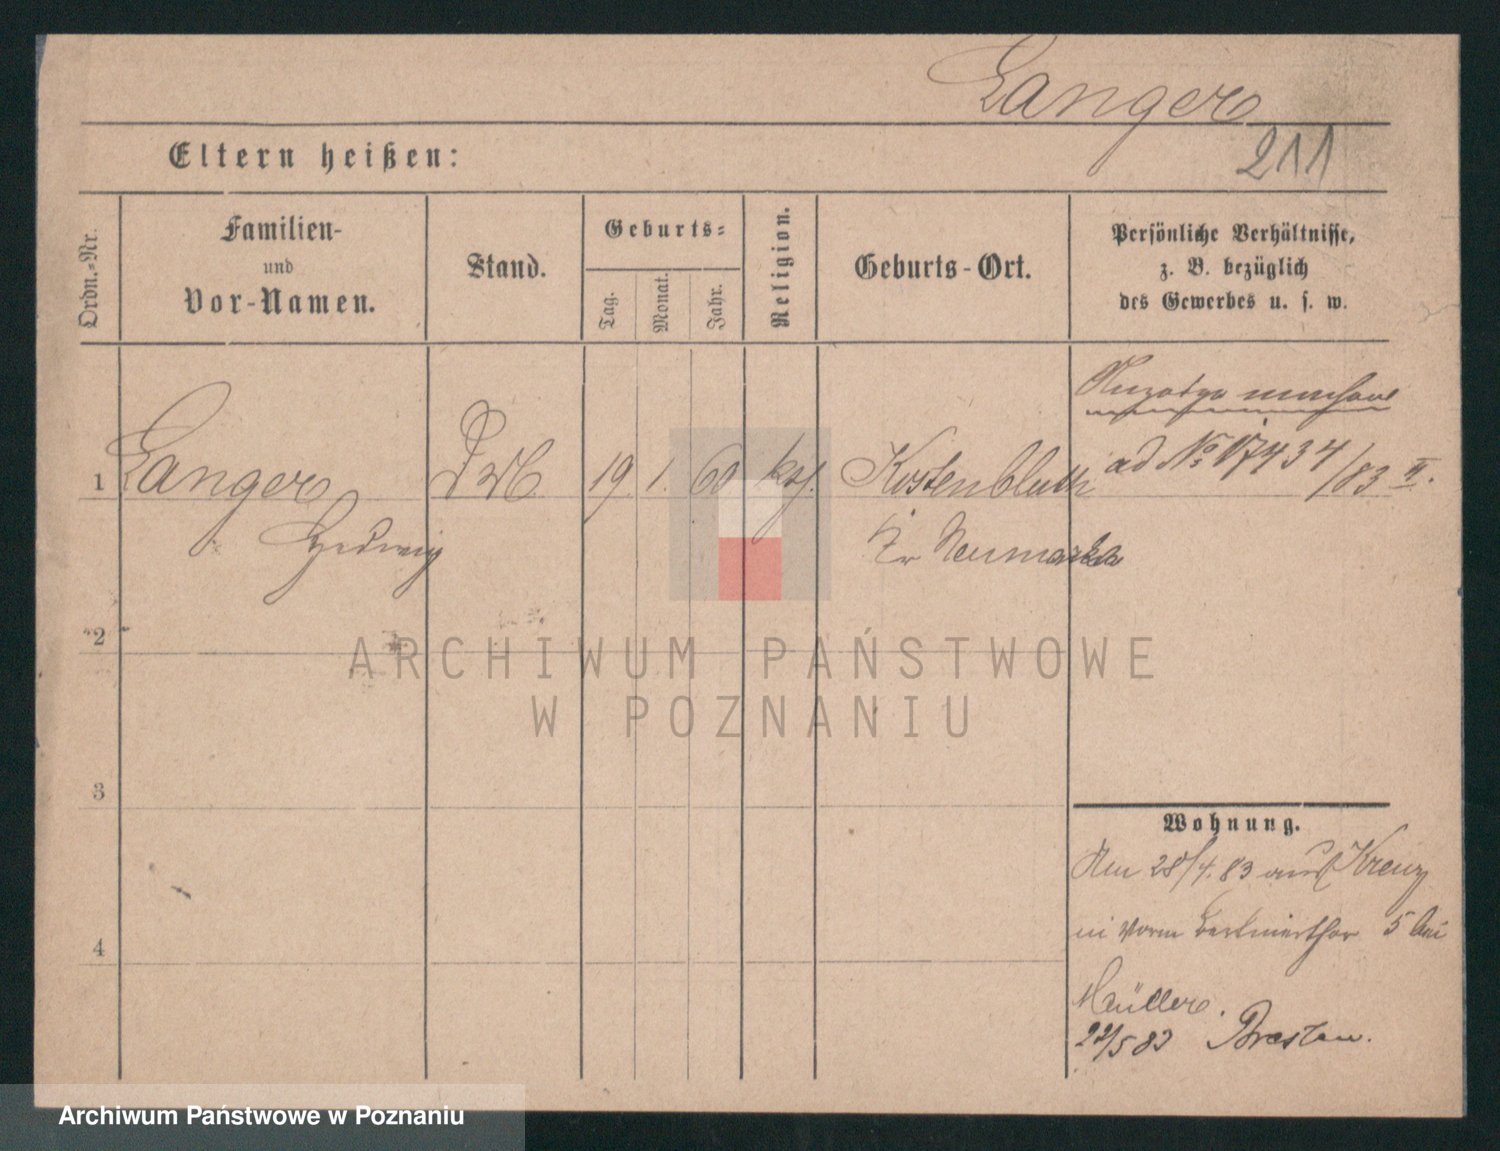 Langer
211
Eltern heißen:
Ordn.-Nr.
Familien-
und
Vor-Namen.
Stand.
Geburts-
Tag.
Monat.
Jahr.
Religion.
Geburts-Ort.
Persönliche Verhältnisse,
z. B. bezüglich
des Gewerbes u. s. w.
1
Langer
Hedwig
19
1.
60
kth.
Kostenbluth
Kr Neumarkt
ad No 17434/83 II.
2
3
4
Wohnung.
Am 28/4. 83 aus Kreuz
in vorm Berlinerthor 5 bei
Müller.
22/5 83 Breslau.
ARCHIWUM PAŃSTWOWE
W POZNANIU
Archiwum Państwowe w Poznaniu